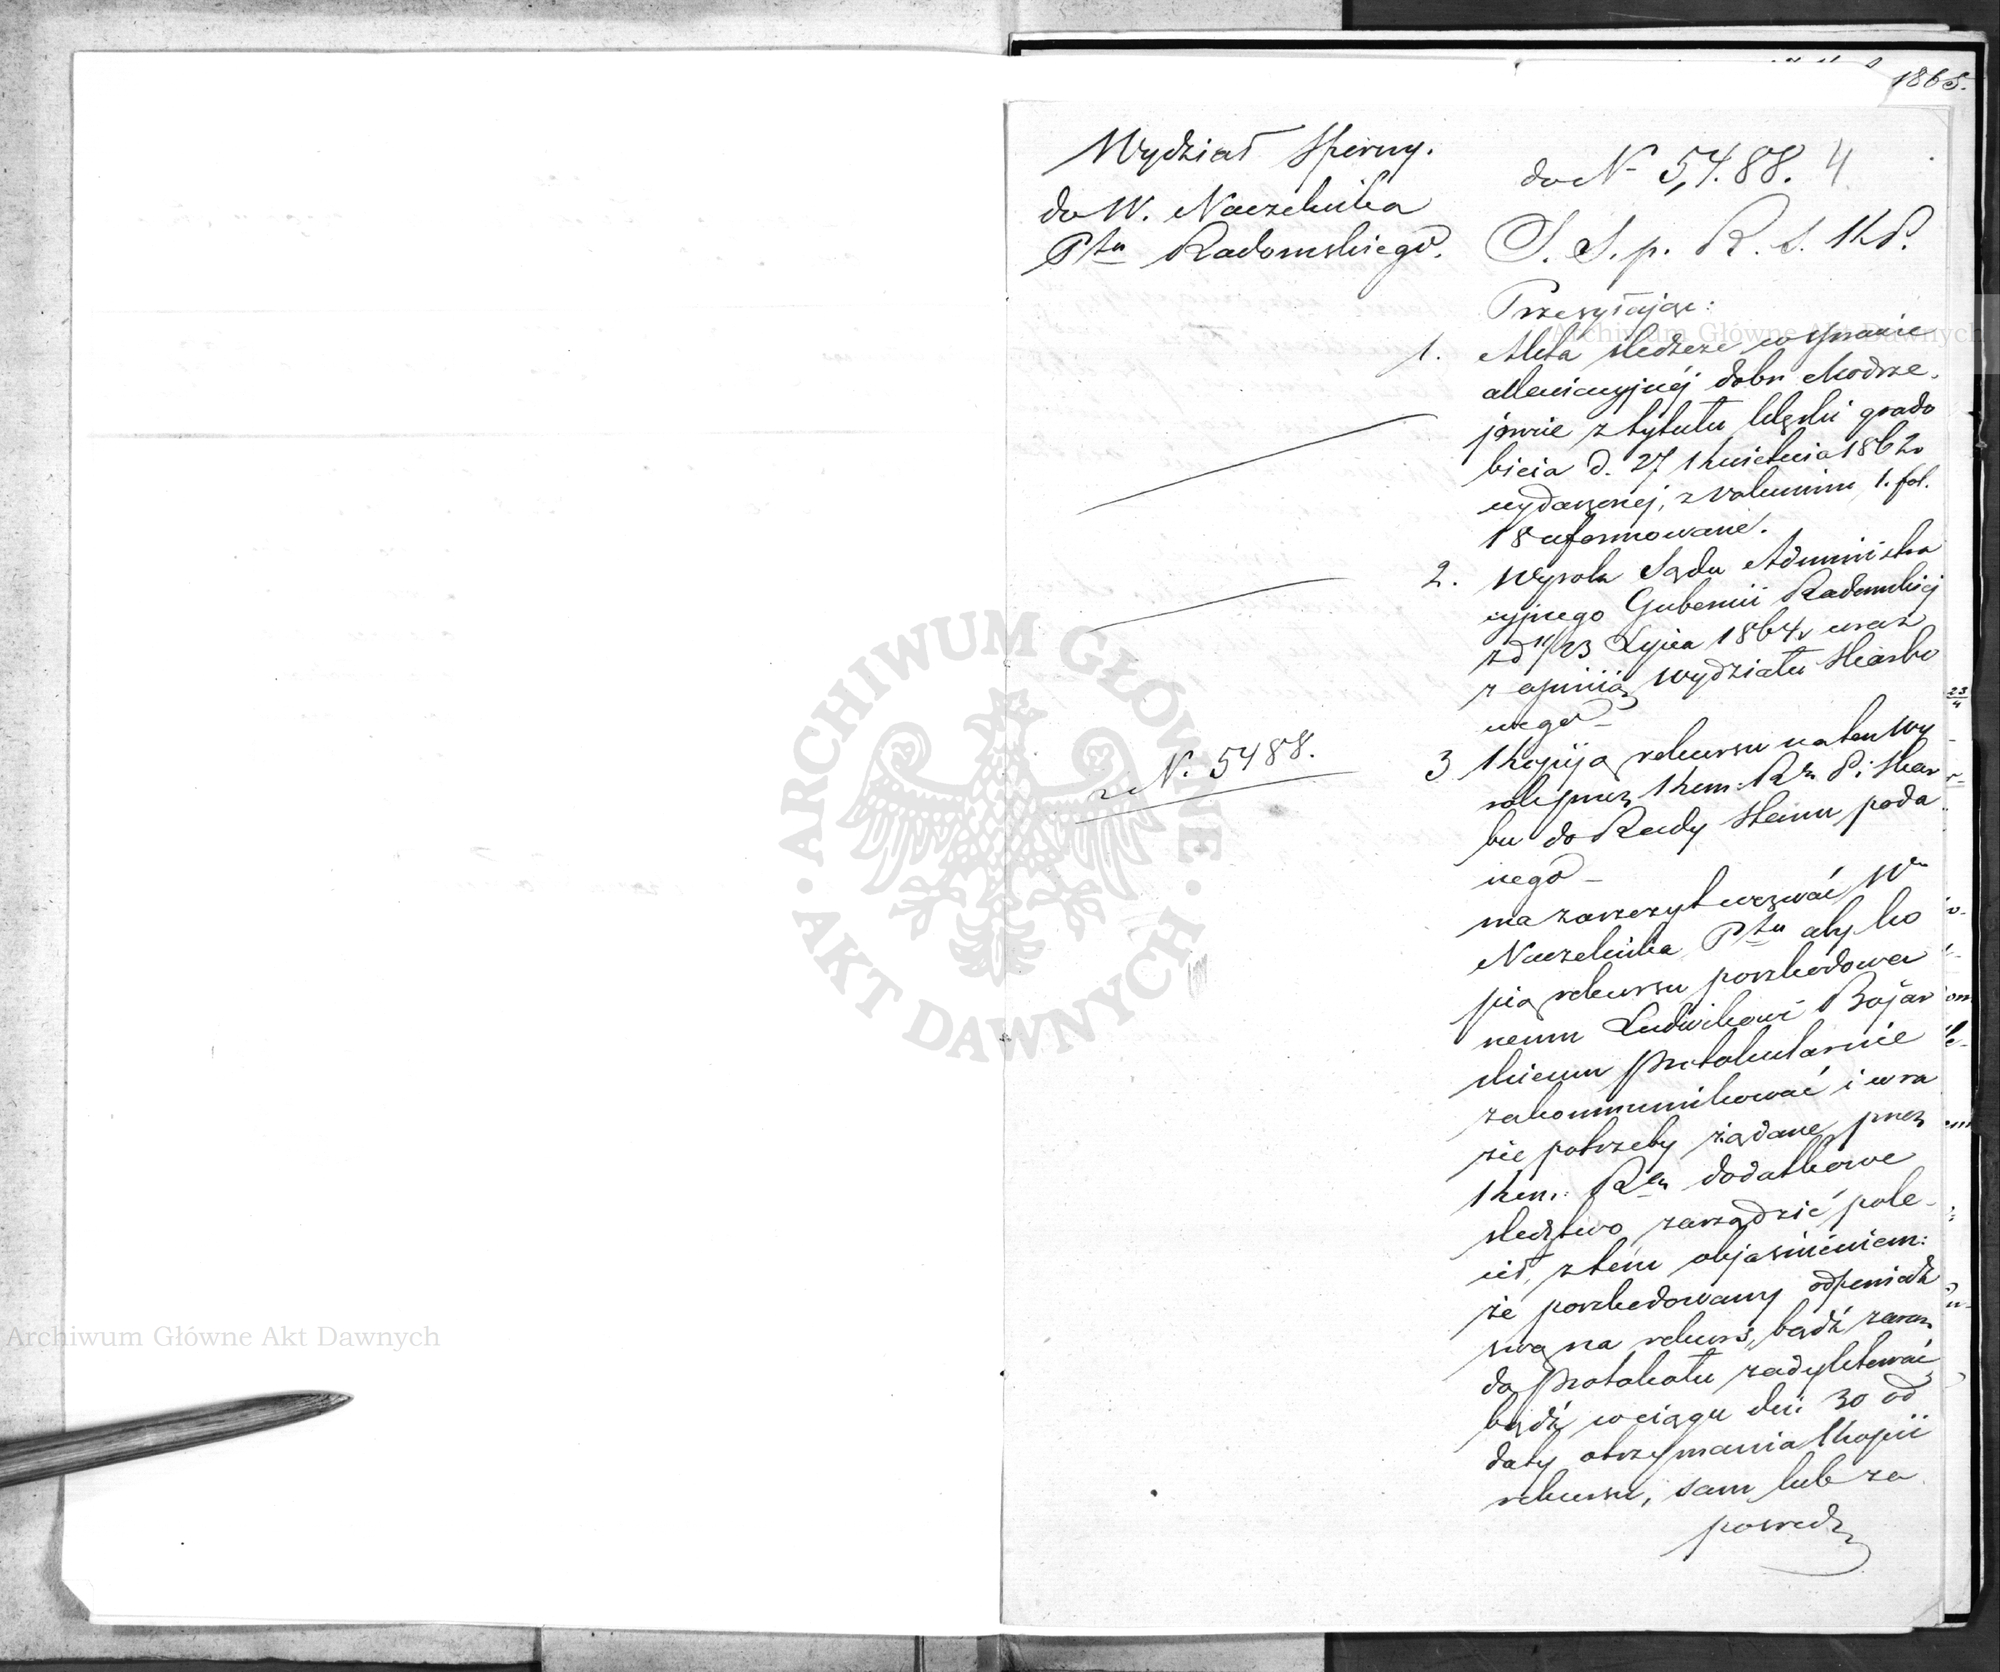 1865.
Wydział Sporny.
do W. Naczelnika
Ptu Radomskiego.
do N 5,488. 4
S. S. p. R. S. K. P.
Przesyłając:
1. Akta śledcze w sprawie
allewiacyjnéj dobr Modrze-
jowice z tytułu klęski grado
bicia d. 27 Kwietnia 1862 r
wydarzonej, z volumin 1. fol.
18 uformowane.
2. Wyrok Sądu Administra
cyjnego Gubernii Radomskiej
z d 11/23 Lipca 1864 r wraz
z opinią Wydziału Skarbo
wego
3 Kopiją rekursu na ten wy
rok przez Kom: Rn P: i Skar
bu do Rady Stanu poda
nego
z N. 5488.
ma zaszczyt wezwać Wo
Naczelnika Ptu aby ko
pią rekursu poszkodowa
nemu Ludwikowi Bojar
skiemu protokularnie
zakommunikować i w ra
zie potrzeby żądane przez
Kom: Rn dodatkowe
śledztwo zarządzić pole-
cił, z tém objaśnieniem:
że poszkodowany odpowiedź
swą na rekurs, bądź zaraz
do protokołu zadyktować
bądź w ciągu dni 30 od
daty otrzymania Kopii
rekursu, sam lub za
pośred
Archiwum Główne Akt Dawnych
ARCHIWUM GŁÓWNE AKT DAWNYCH
Archiwum Główne Akt Dawnych